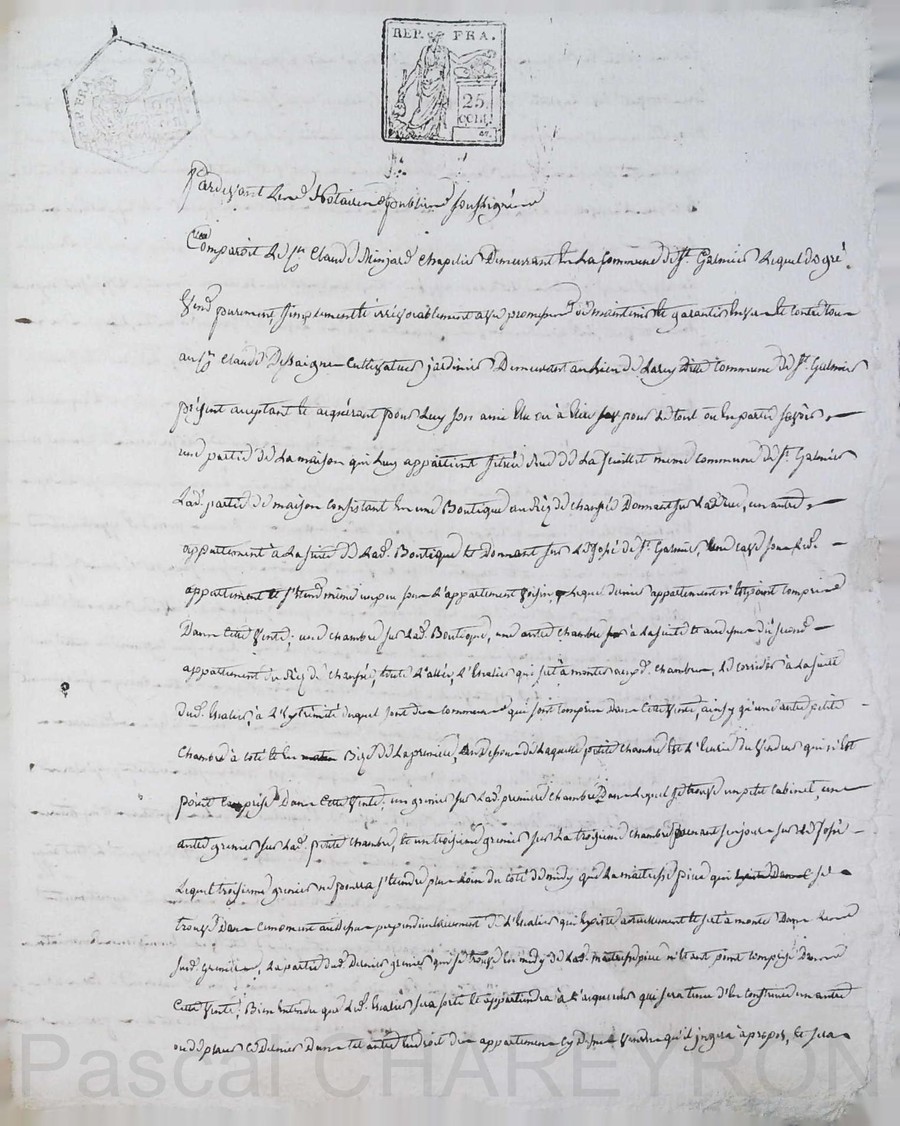 REP. FRA.
25
cent.
REP. FRA.
Pardevant le no.re Notaire public soussigné
Comparoit le Sr Claude Minjard chapelier demeurant en la commune de St. Galmier lequel de gré
vend purement simplement et irrévocablement avec promesse de maintenir et garantir envers et contre tous
au Sr Claude Dessaigne cultivateur jardinier demeurant au lieu de dite commune de St. Galmier
présent acceptant et acquérant pour luy son amie élu ou à élire pour le tout ou en partie sçavoir
une partie de la maison qui luy appartient située rue de la feuillet meme commune de St. Galmier
Lad. partie de maison consistant en une Boutique au Réz de chaussée donnant sur la rue, un autre
appartement à la suite de lad. Boutique et donnant sur de St. Galmier, une cave sous led.
appartement et s'étend même un peu sous l'appartement voisin, lequel dernier appartement n'est point compris
dans cette vente; une chambre sur lad. Boutique, une autre chambre à la suite et au dessus du second
appartement du Réz de chaussée, toute l'allée, l'escalier qui sert à monter auxd. chambres, le corridor à la suite
dud. escalier, à l'extrémité duquel sont des commodités qui sont compris dans cette vente, ainsy qu'une autre petite
chambre à coté et en Bize de la premiere, au dessous de laquelle petite chambre est l'écurie du vendeur qui n'est
point comprise dans cette vente; un grenier sur lad. premiere chambre dans lequel se trouve un petit cabinet, un
autre grenier sur lad. petite chambre, et un troisieme grenier sur la troisieme chambre prenant son jour sur
lequel troisieme grenier ne pourra s'étendre plus loin du coté de midy que la maitresse piece qui se
trouve dans ce moment au dessus perpendiculairement de l'escalier qui existe actuellement et sert à monter dans
susd. greniers, la partie dud. dernier grenier qui se trouve en midy de lad. maitresse piece n'étant point comprise dans
cette vente; Bien entendu que led. escalier sera et appartiendra à l'acquereur qui sera tenu d'en construire un autre
ou déplacer ce dernier dans tel autre endroit des appartements cy dessus vendus qu'il jugera à propos, et sera
Pascal CHAREYRON